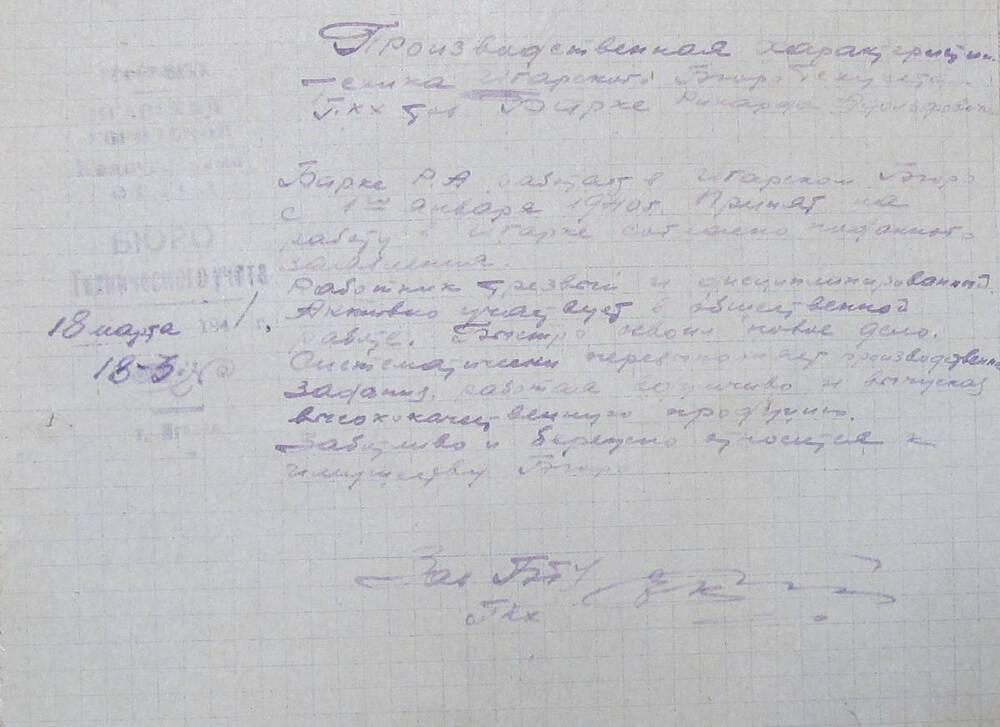 Производственная характеристи-
техника Игарского Бюро Техучета
ГКХ тов Бирке Рихарда Адольфович
Бирке Р.А работает в Игарском Бюро
с 1го января 1940г. Принят на
работу в Игарке согласно поданного
заявления.
Работник трезвый и дисциплинированный.
Активно участвует в общественной
работе. Быстро освоил новое дело.
Систематически перевыполняет производственн
задания, работая вдумчиво и выпуская
высококачественную продукцию.
Заботливо и бережно относится к
имуществу Бюро.
БЮРО
Технического учета
18 марта
18-3
Зав БТУ
ГКХ